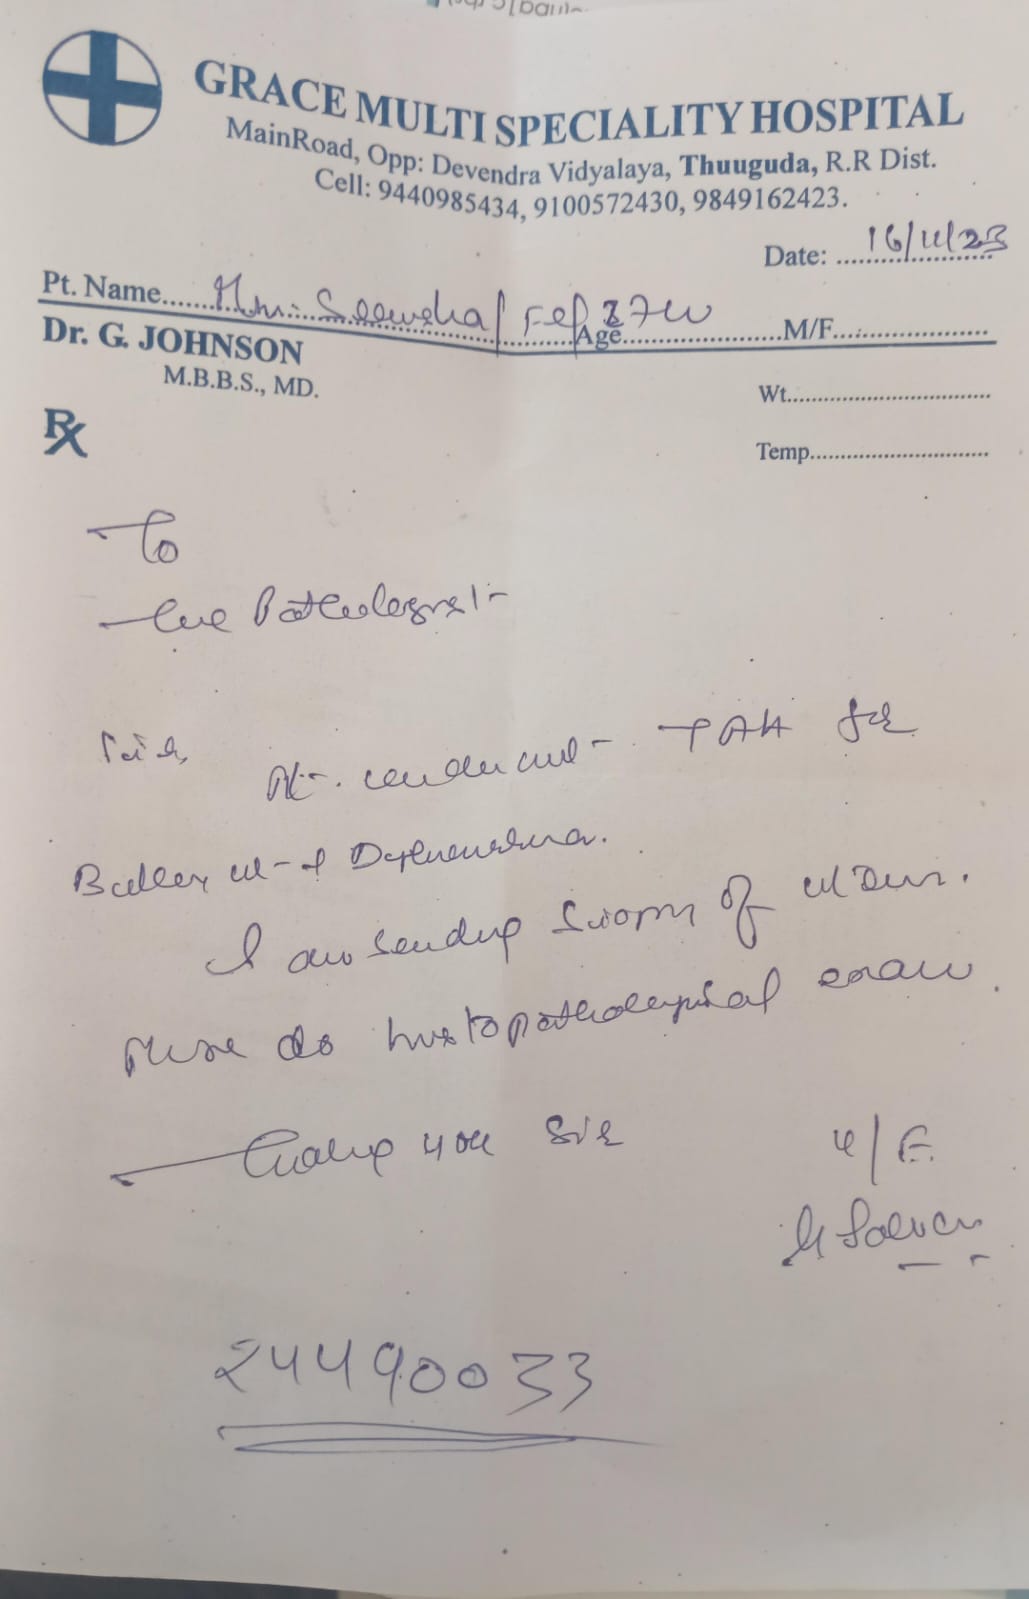 GRACE MULTI SPECIALITY HOSPITAL
MainRoad, Opp: Devendra Vidyalaya, Thuuguda, R.R Dist.
Cell: 9440985434, 9100572430, 9849162423.
Date: 16/11/23
Pt. Name
Age M/F
Dr. G. JOHNSON
M.B.B.S., MD.
Wt
Rx
Temp
To
the Pathologist
Sir,
Pt. underwent TAH for
Bulky ut
I am sending of uterus.
Please do histopathological exam.
Thanking you Sir
24490033